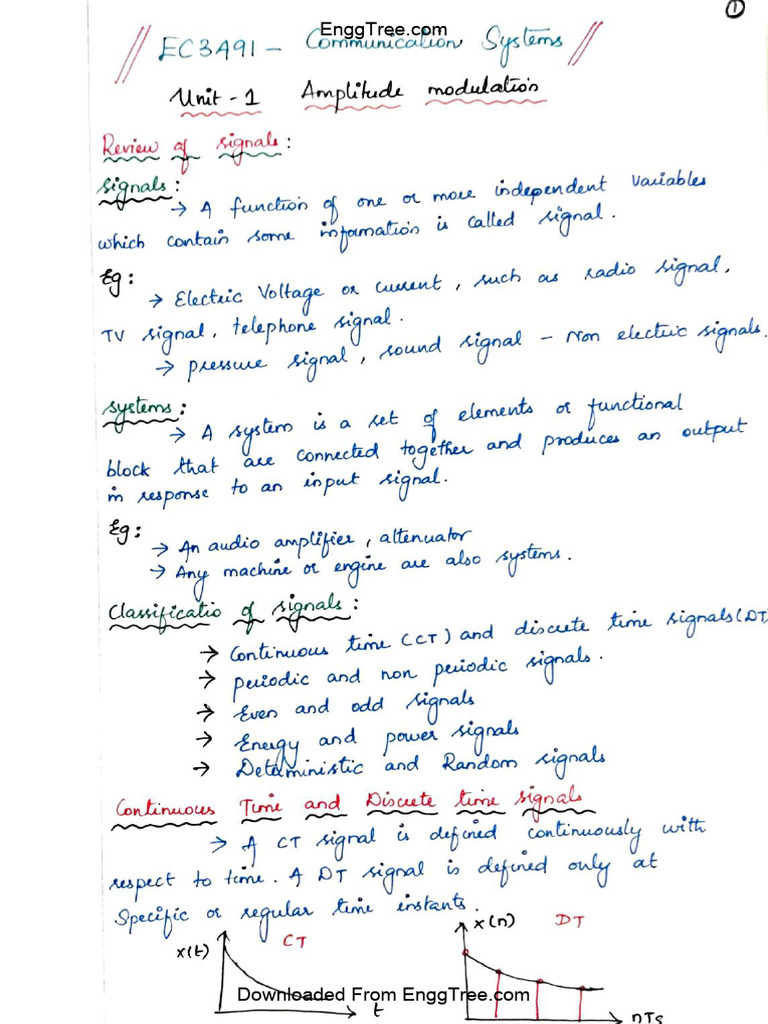 EnggTree.com
1
EC3491 - Communication Systems
Unit - 1 Amplitude modulation
Review of signals:
signals:
→ A function of one or more independent variables
which contain some information is called signal.
Eg:
→ Electric Voltage or current, such as radio signal,
TV signal, telephone signal.
→ pressure signal, sound signal - Non electric signals.
systems:
→ A system is a set of elements or functional
block that are connected together and produces an output
in response to an input signal.
Eg:
→ An audio amplifier, attenuator
→ Any machine or engine are also systems.
Classificatio of signals:
→ Continuous time (CT) and discrete time signals (DT
→ periodic and non periodic signals.
→ Even and odd signals
→ Energy and power signals
→ Deterministic and Random signals
Continuous Time and Discrete time signals
→ A CT signal is defined continuously with
respect to time. A DT signal is defined only at
Specific or regular time instants.
x(t) CT t
x(n) DT nTs
Downloaded From EnggTree.com